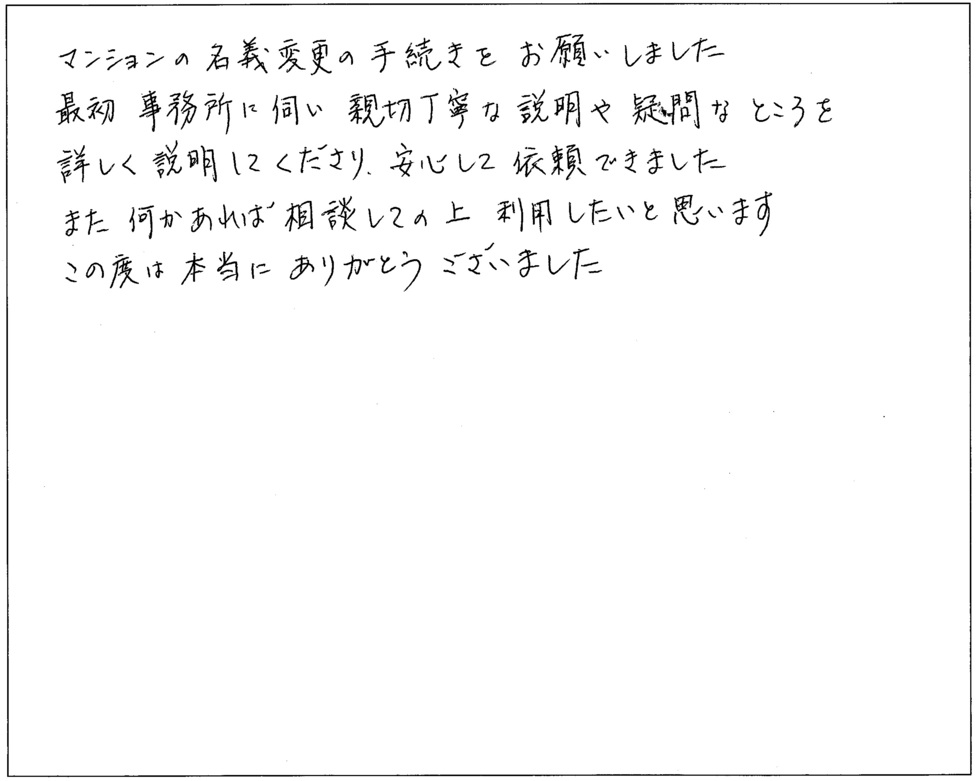 マンションの名義変更の手続きを お願いしました
最初 事務所に伺い 親切丁寧な説明や疑問なところを
詳しく説明してくださり、安心して依頼できました
また何かあれば相談しての上 利用したいと思います
この度は本当に ありがとう ございました